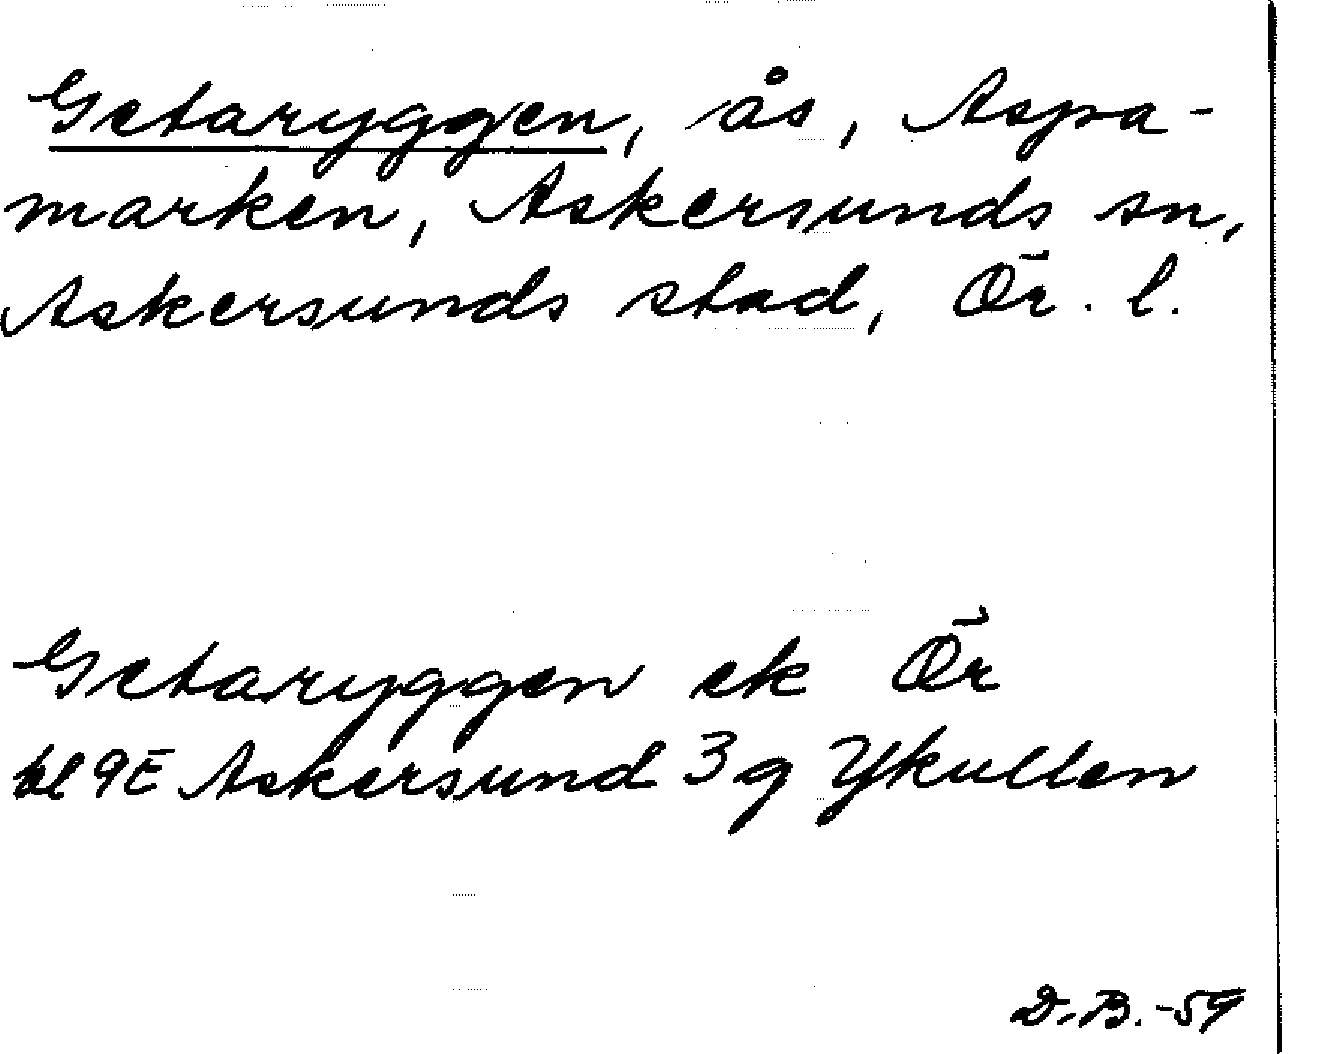 Getaryggen, ås, Aspa-
marken, Askersunds sn,
Askersunds stad, Ör. l.
Getaryggen ek Ör
bl 9E Askersund 3g Ykullen
D.B.-59